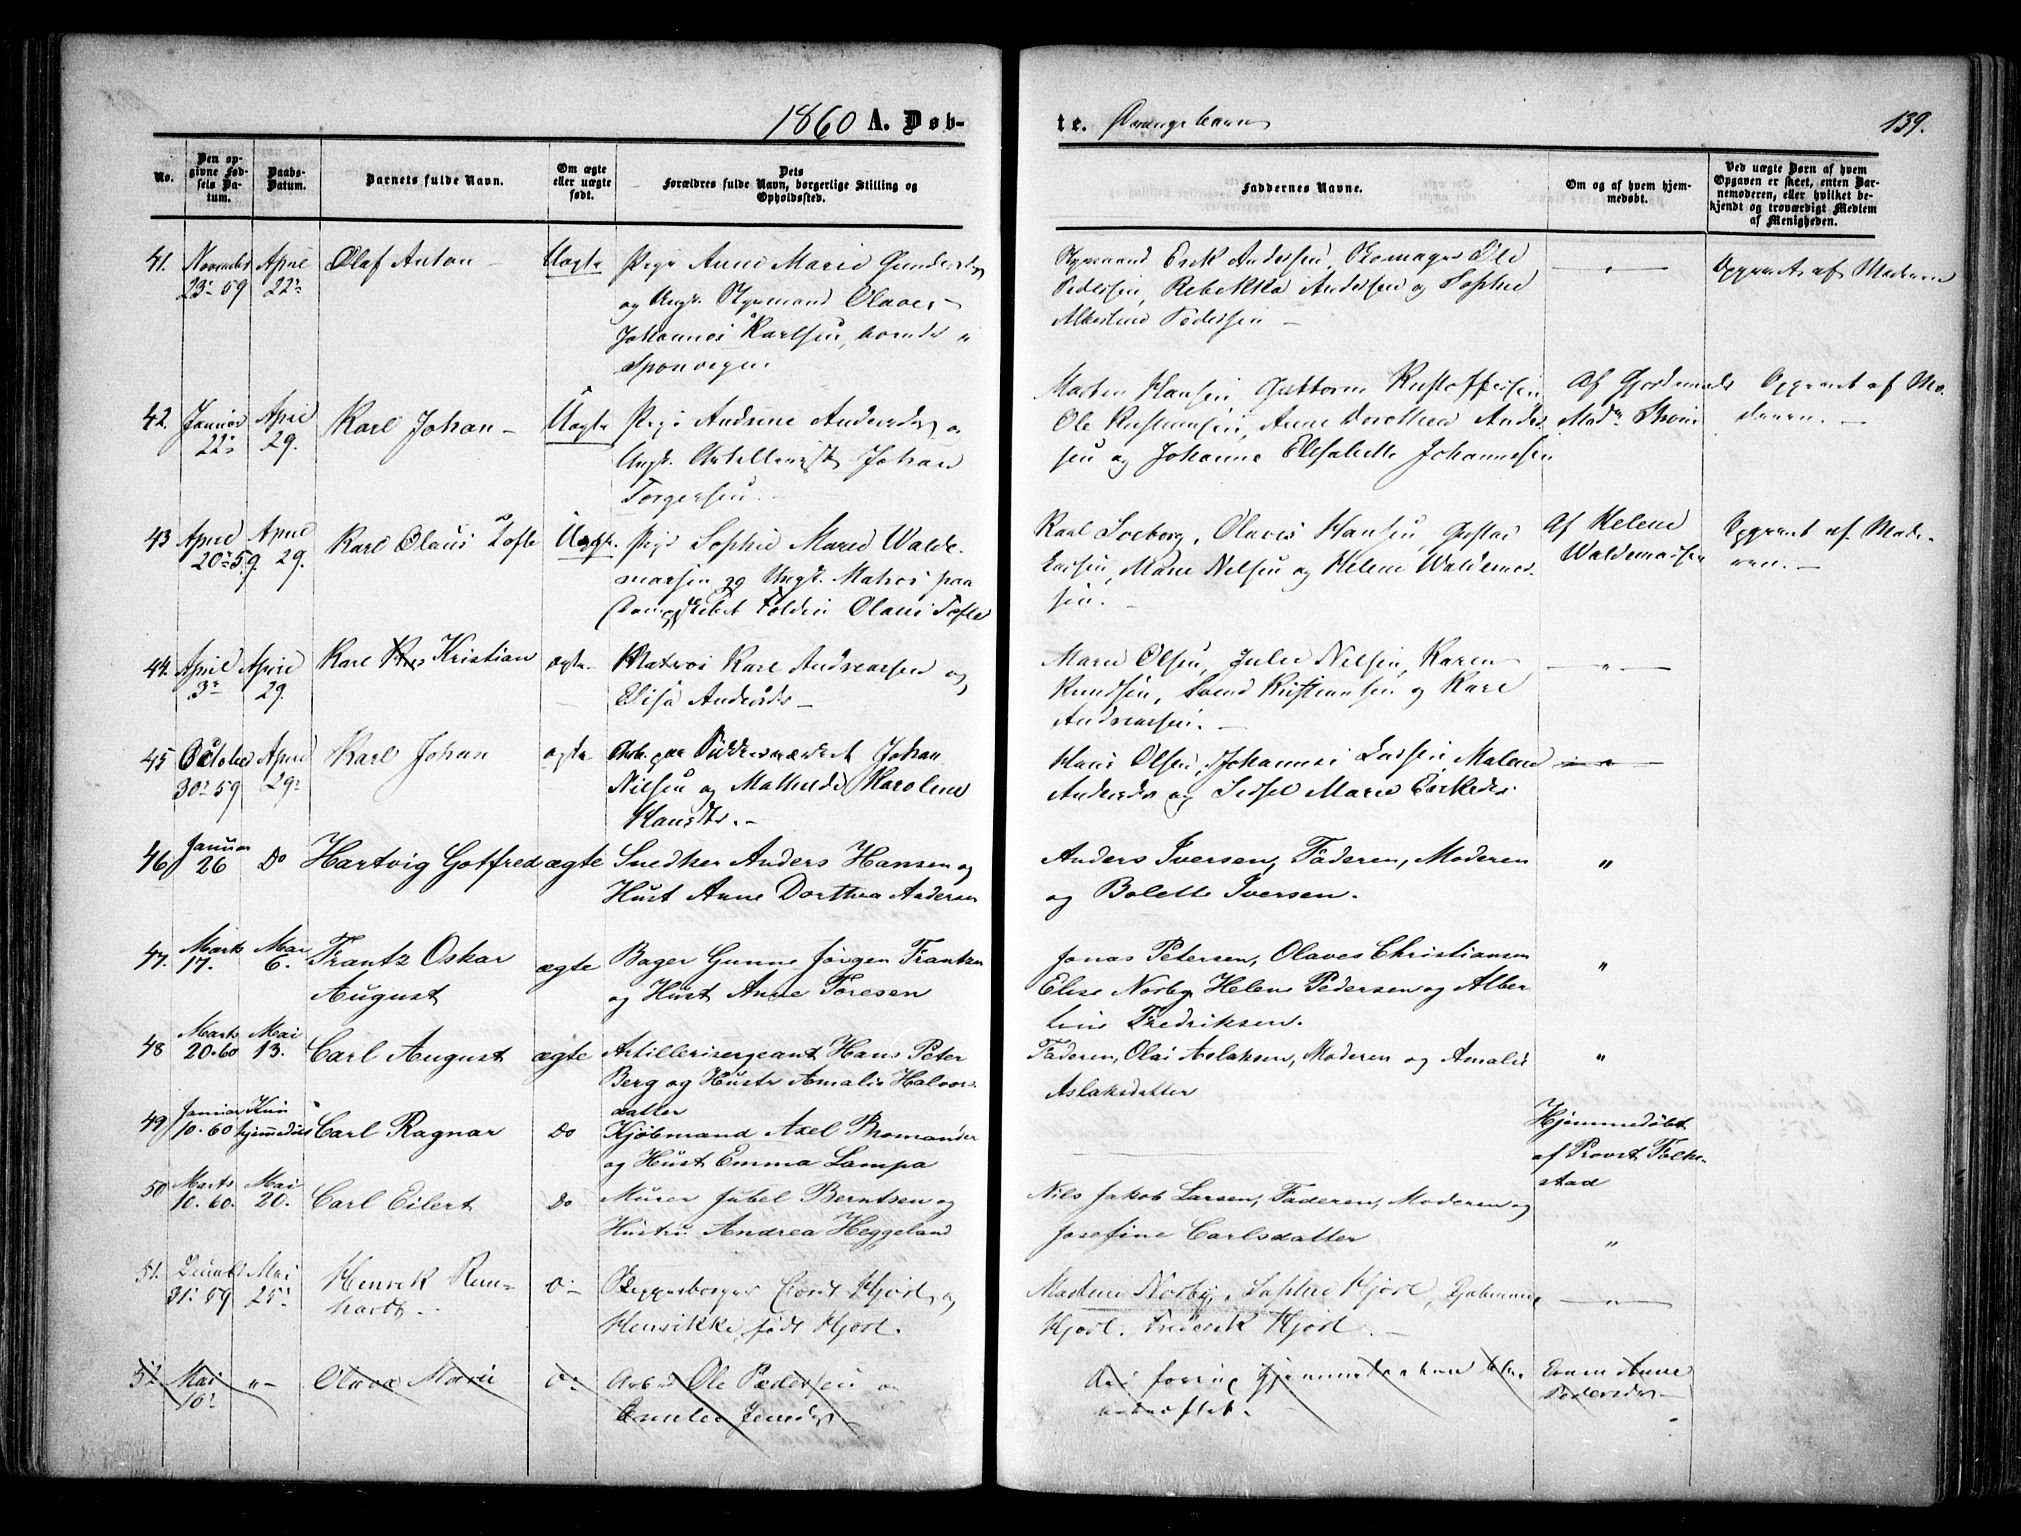 1860 A. Døb-
te. Drengebørn
139.
No.
Den op-
givne Fød-
sels Da-
tum.
Daabs-
Datum.
Barnets fulde Navn.
Om ægte
eller uægte
født.
Dets
Forældres fulde Navn, borgerlige Stilling og
Opholdssted.
Faddernes Navne.
Om og af hvem hjem-
medøbt.
Ved uægte Børn af hvem
Opgaven er skeet, enten Bar-
nemoderen, eller hvilket be-
kjendt og troværdigt Medlem
af Menigheden.
41. November 23. 59 April 22. Olaf Anton Uægte Pige Anne Marie
og Ungk. Styrmand Olaves
Johannes Karlsen,
Styrmand Erik Andersen, Ole
Pedersen, Rebekka Andersen og Sophie
Albertine Pedersen
Opgivet af Moderen
42. Januar 22. April 29. Karl Johan Uægte Pige Andrine Andersdr og
Ungk. Artillerist Johan
Torgersen.
Morten Hansen, Guttorm Kristoffersen
Ole Kristiansen, Anne Dorothea Ander
sen og Johanne Elisabeth Johannesen
Af Gjordemoder
Opgivet af Mo-
deren.
43 April 20. 59. April 29. Karl Olaus Tofte Uægte. Pige Sophie Marie Walde-
marsen og Ungk. Matros paa
Dampskibet Olaus Tofte
Karl Soeborg, Olaves Hansen, Gustav
Larsen, Marie Nilsen og Helene Waldemar-
sen.
Af Helene
Waldemarsen
Opgivet af Mode-
ren.
44. April 3. April 29. Karl Kristian ægte. Matros Karl Andreassen og
Elisa Andersdr
Marie Olsen, Julie Nilsen, Karen
Knudsen, Svend Kristiansen og Karl
Andreassen.
45 October 30. 59 April 29. Karl Johan ægte Arb. paa Johan
Nielsen og Mathilde Karoline
Hansdtr.
Hans Olsen, Johannes Larsen, Malene
Andersdr og Sidsel Marie Eriksdr.
46 Januar 26 Do Hartvig Gotfred ægte Snedker Anders Hansen og
Hust Anne Dorthea Andersen
Anders Iversen, Faderen, Moderen
og Bolette Iversen.
"
47. Marts 17. Mai 6. Frantz Oskar
August
ægte Bager Gunne Jørgen Frantzen
og Hust Anne Toresen
Jonas Petersen, Olaves Christiansen
Elise Norby, Helene Pedersen og Alber
tine Fredriksen.
"
48 Marts 20. 60 Mai 13. Carl August ægte Artillerisergeant Hans Peter
Berg og Hustr Amalie Halvors
datter
Faderen, Olai Aslaksen, Moderen og Amalie
Aslaksdatter
"
49 Januar 10. 60 hjemmedøbt Carl Ragnar Do Kjøbmand Axel Thomander
og Hust Emma Lampa
Hjemmedøbt
af Provst Folke-
stad
50 Marts 10. 60. Mai 20. Carl Eilert Do Murer Jubel Berntsen og
Hustru Andrea Heggeland
Nils Jakob Larsen, Faderen, Moderen og
Josefine Carlsdatter
"
51. Decmbr 31. 59 Mai 25. Henrik Rein-
hardt
Do Skippsborger Hjort og
Henrikke, født Hjort.
Madme Norby, Sophie Hjort,
Hjort, Frederik Hjort.
52 Mai 10. Olava Marie Do Arb. Ole Pedersen og
Emilie Jensdr
Anne
Pedersdr